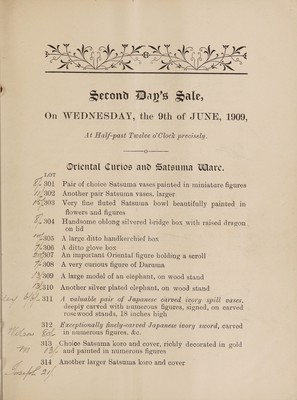 Second Day's Sale,
On WEDNESDAY, the 9th of JUNE, 1909,
At Half-past Twelve o'Clock precisely.
Oriental Curios and Satsuma Ware.
LOT
301 Pair of choice Satsuma vases painted in miniature figures
302 Another pair Satsuma vases, larger
303 Very fine fluted Satsuma bowl beautifully painted in
flowers and figures
304 Handsome oblong silvered bridge box with raised dragon
on lid
305 A large ditto handkerchief box
306 A ditto glove box
307 An important Oriental figure holding a scroll
308 A very curious figure of Daruma
309 A large model of an elephant, on wood stand
310 Another silver plated elephant, on wood stand
311 A valuable pair of Japanese carved ivory spill vases,
deeply carved with numerous figures, signed, on carved
rosewood stands, 18 inches high
312 Exceptionally finely-carved Japanese ivory sword, carved
in numerous figures, &c.
313 Choice Satsuma koro and cover, richly decorated in gold
and painted in numerous figures
314 Another larger Satsuma koro and cover